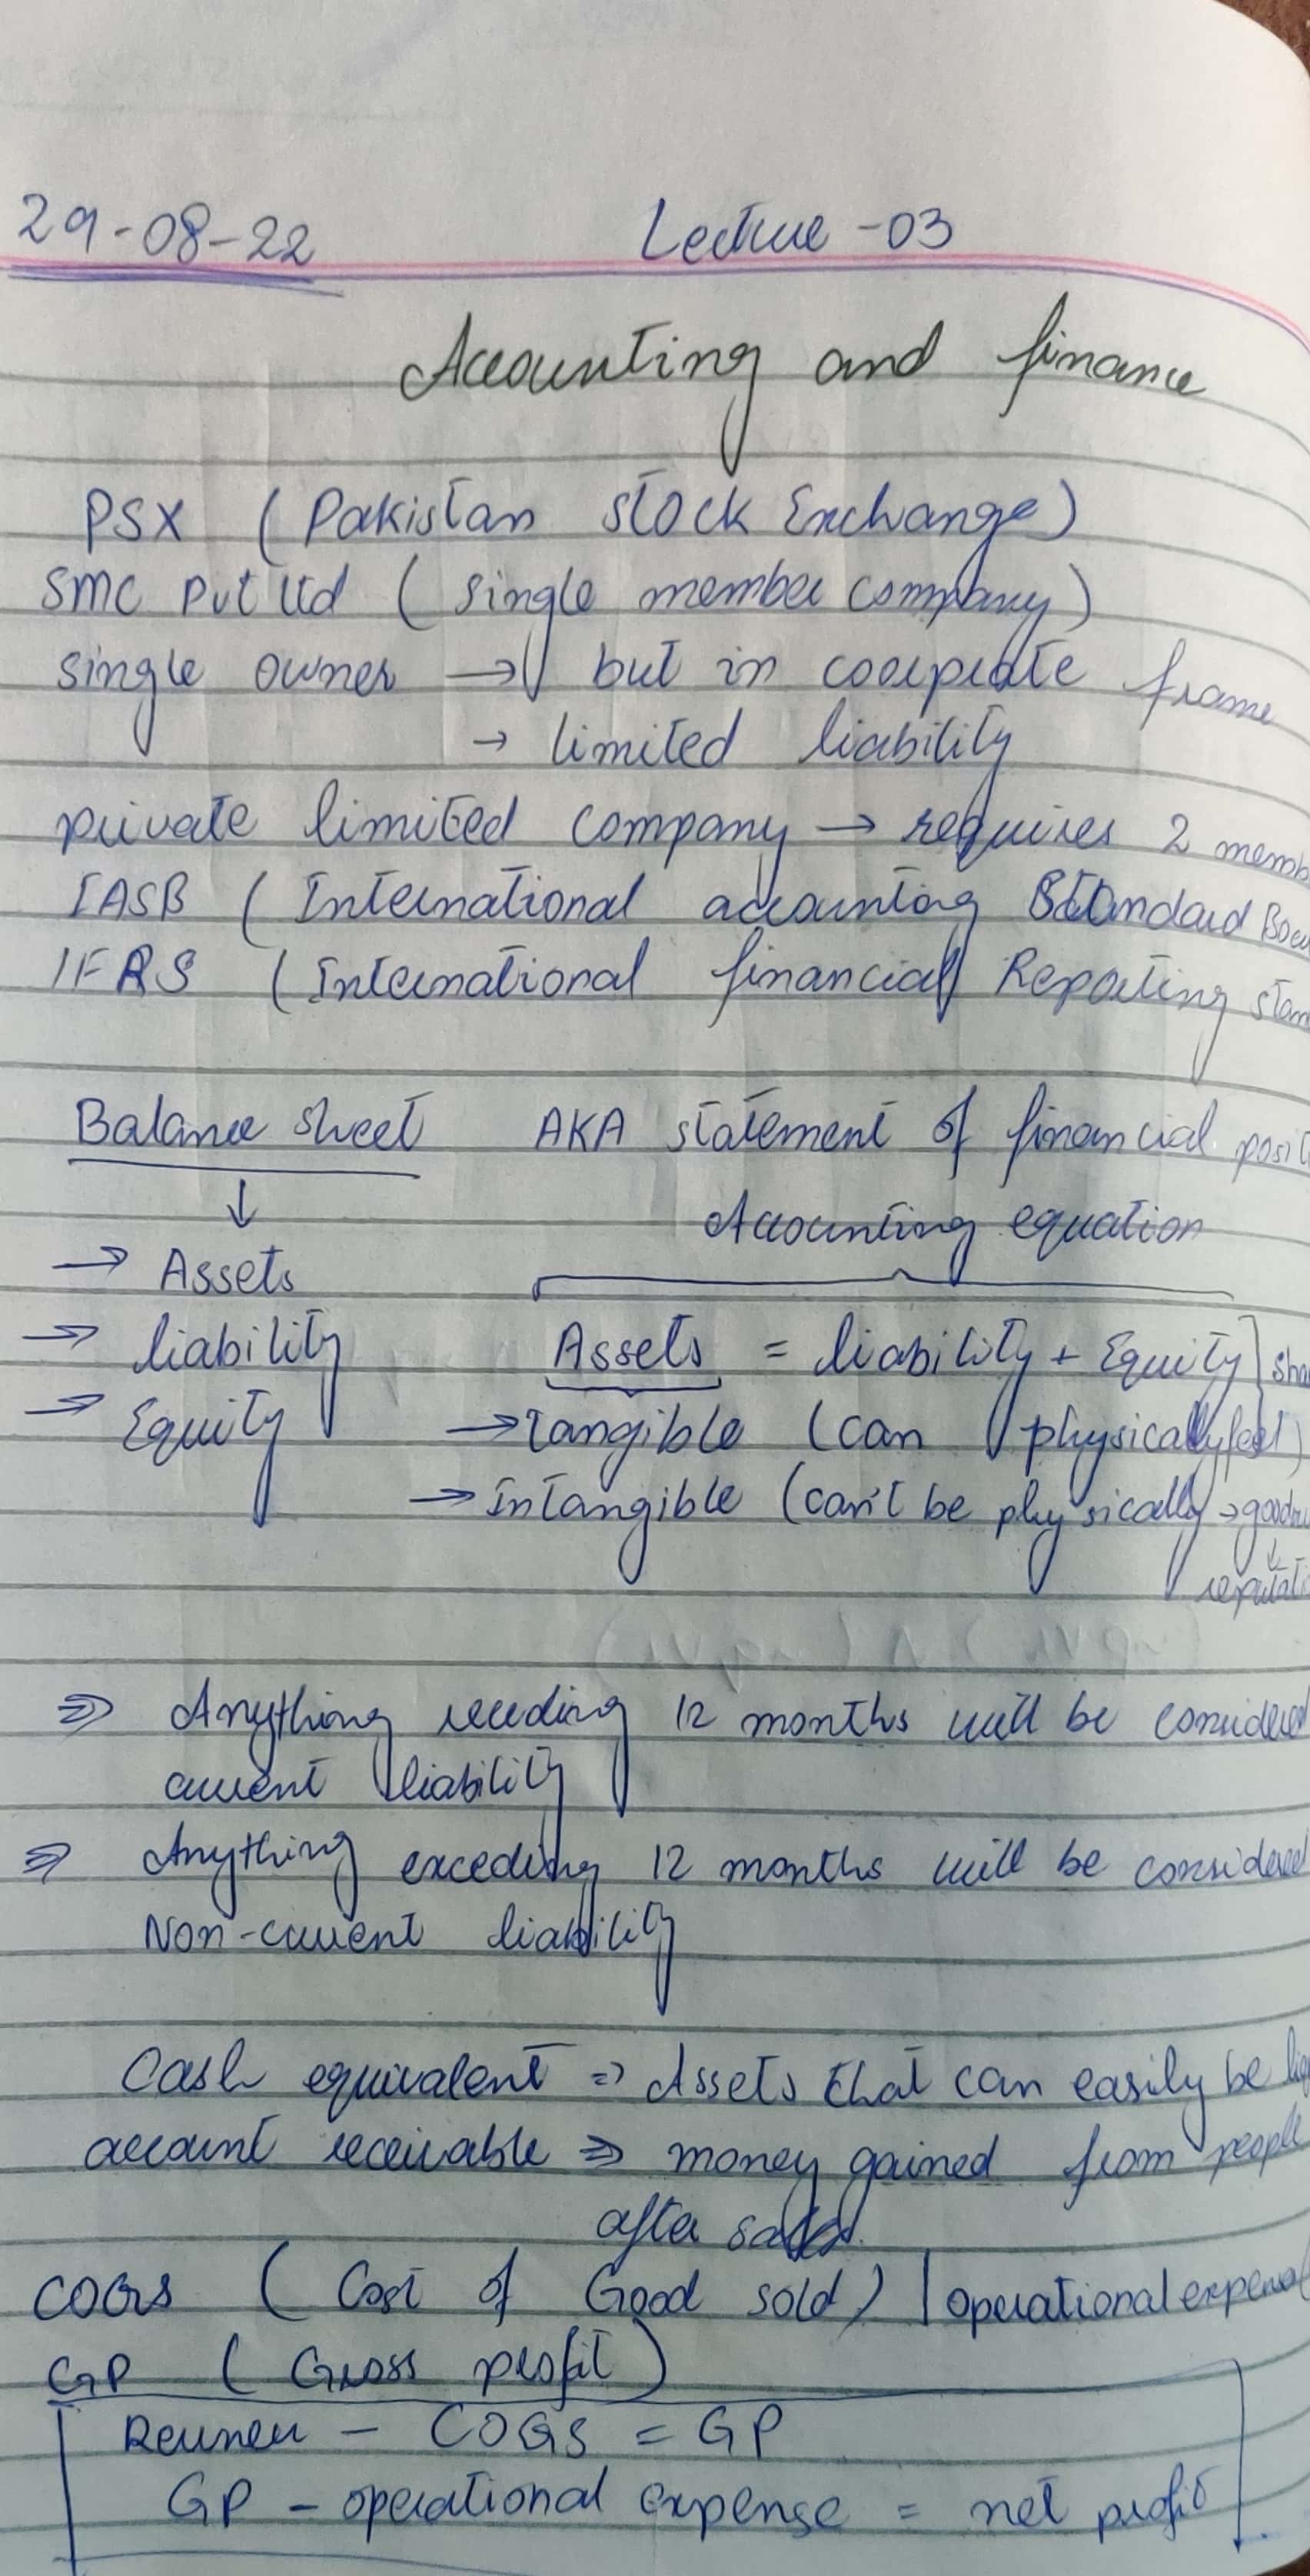 29-08-22 Lecture -03
Accounting and finance
PSX ( Pakistan stock Exchange)
SMC Pvt ltd ( single member company)
single owner → but in coorprate frame
→ limited liability
private limited company → requires 2 memb
IASB ( International accounting Standard Boa
IFRS ( International financial Reporting stan
Balance sheet AKA statement of financial posit
↓ Accounting equation
→ Assets
→ liability Assets = liability + Equity] sha
→ Equity → Tangible (can physically feel)
→ Intangible (can't be physically → goodw
↓
reputati
⇒ Anything receding 12 months will be considered
current liability
⇒ Anything exceding 12 months will be considered
Non-current liability
Cash equivalent ⇒ Assets that can easily be liq
account receivable ⇒ money gained from people
after sales
COGS ( Cost of Good sold) | operational expense
GP ( Gross profit)
Reuneu - COGS = GP
GP - operational expense = net profit